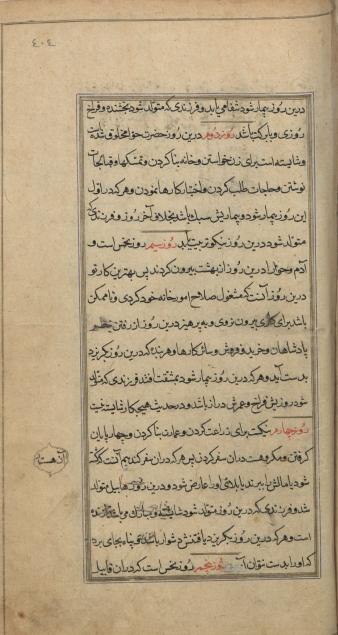 ٤٠٤
درین روز بیمار شود شفا می یابد و فرزندی که متولد شود بخشنده و فراخ
روزی و بابرکت باشد روز دوم درین روز حضرت حوا مخلوق شده است
و شایسته است برای زن خواستن و خانه بنا کردن و تمسکها و قبالجات
نوشتن و حاجات طلب کردن و اختیار کارها نمودن و هر که در اول
این روز بیمار شود بیماریش سبک باشد بخلاف آخر روز و فرزندی که
متولد شود درین روز نیکو تربیت یابد روز سیم روز نحس است و
آدم و حوا را درین روز از بهشت بیرون کردند پس بهترین کار تو
درین روز آنست که مشغول صلاح امور خانه خود گردی و تا ممکن
باشد برای کاری بیرون نروی و بپرهیز درین روز از رفتن
پادشاهان و خرید و فروش و سائر کارها و هر بنده که درین روز بگریزد
بدست آید و هر که درین روز بیمار شود بمشقت افتد و فرزندی که متولد
شود روزیش فراخ و عمرش دراز باشد و در حدیث هیچ کار شایسته نیست
روز چهارم نیکست برای زراعت کردن و عمارت بنا کردن و چهارپایان
گرفتن و مکروهست در آن سفر کردن پس هر که در آن سفر کند بیم آنست که کشته
شود یا مالش را ببرند یا بلائی او را عارض شود و درین روز هابیل متولد
شد و فرزندی که درین روز متولد شود شایسته و مبارک
است و هر که درین روز بگریزد یافتنش دشوار باشد و پناه بجای برد
که او را بدست نتوان آورد روز پنجم روز نحس است که در آن قابیل